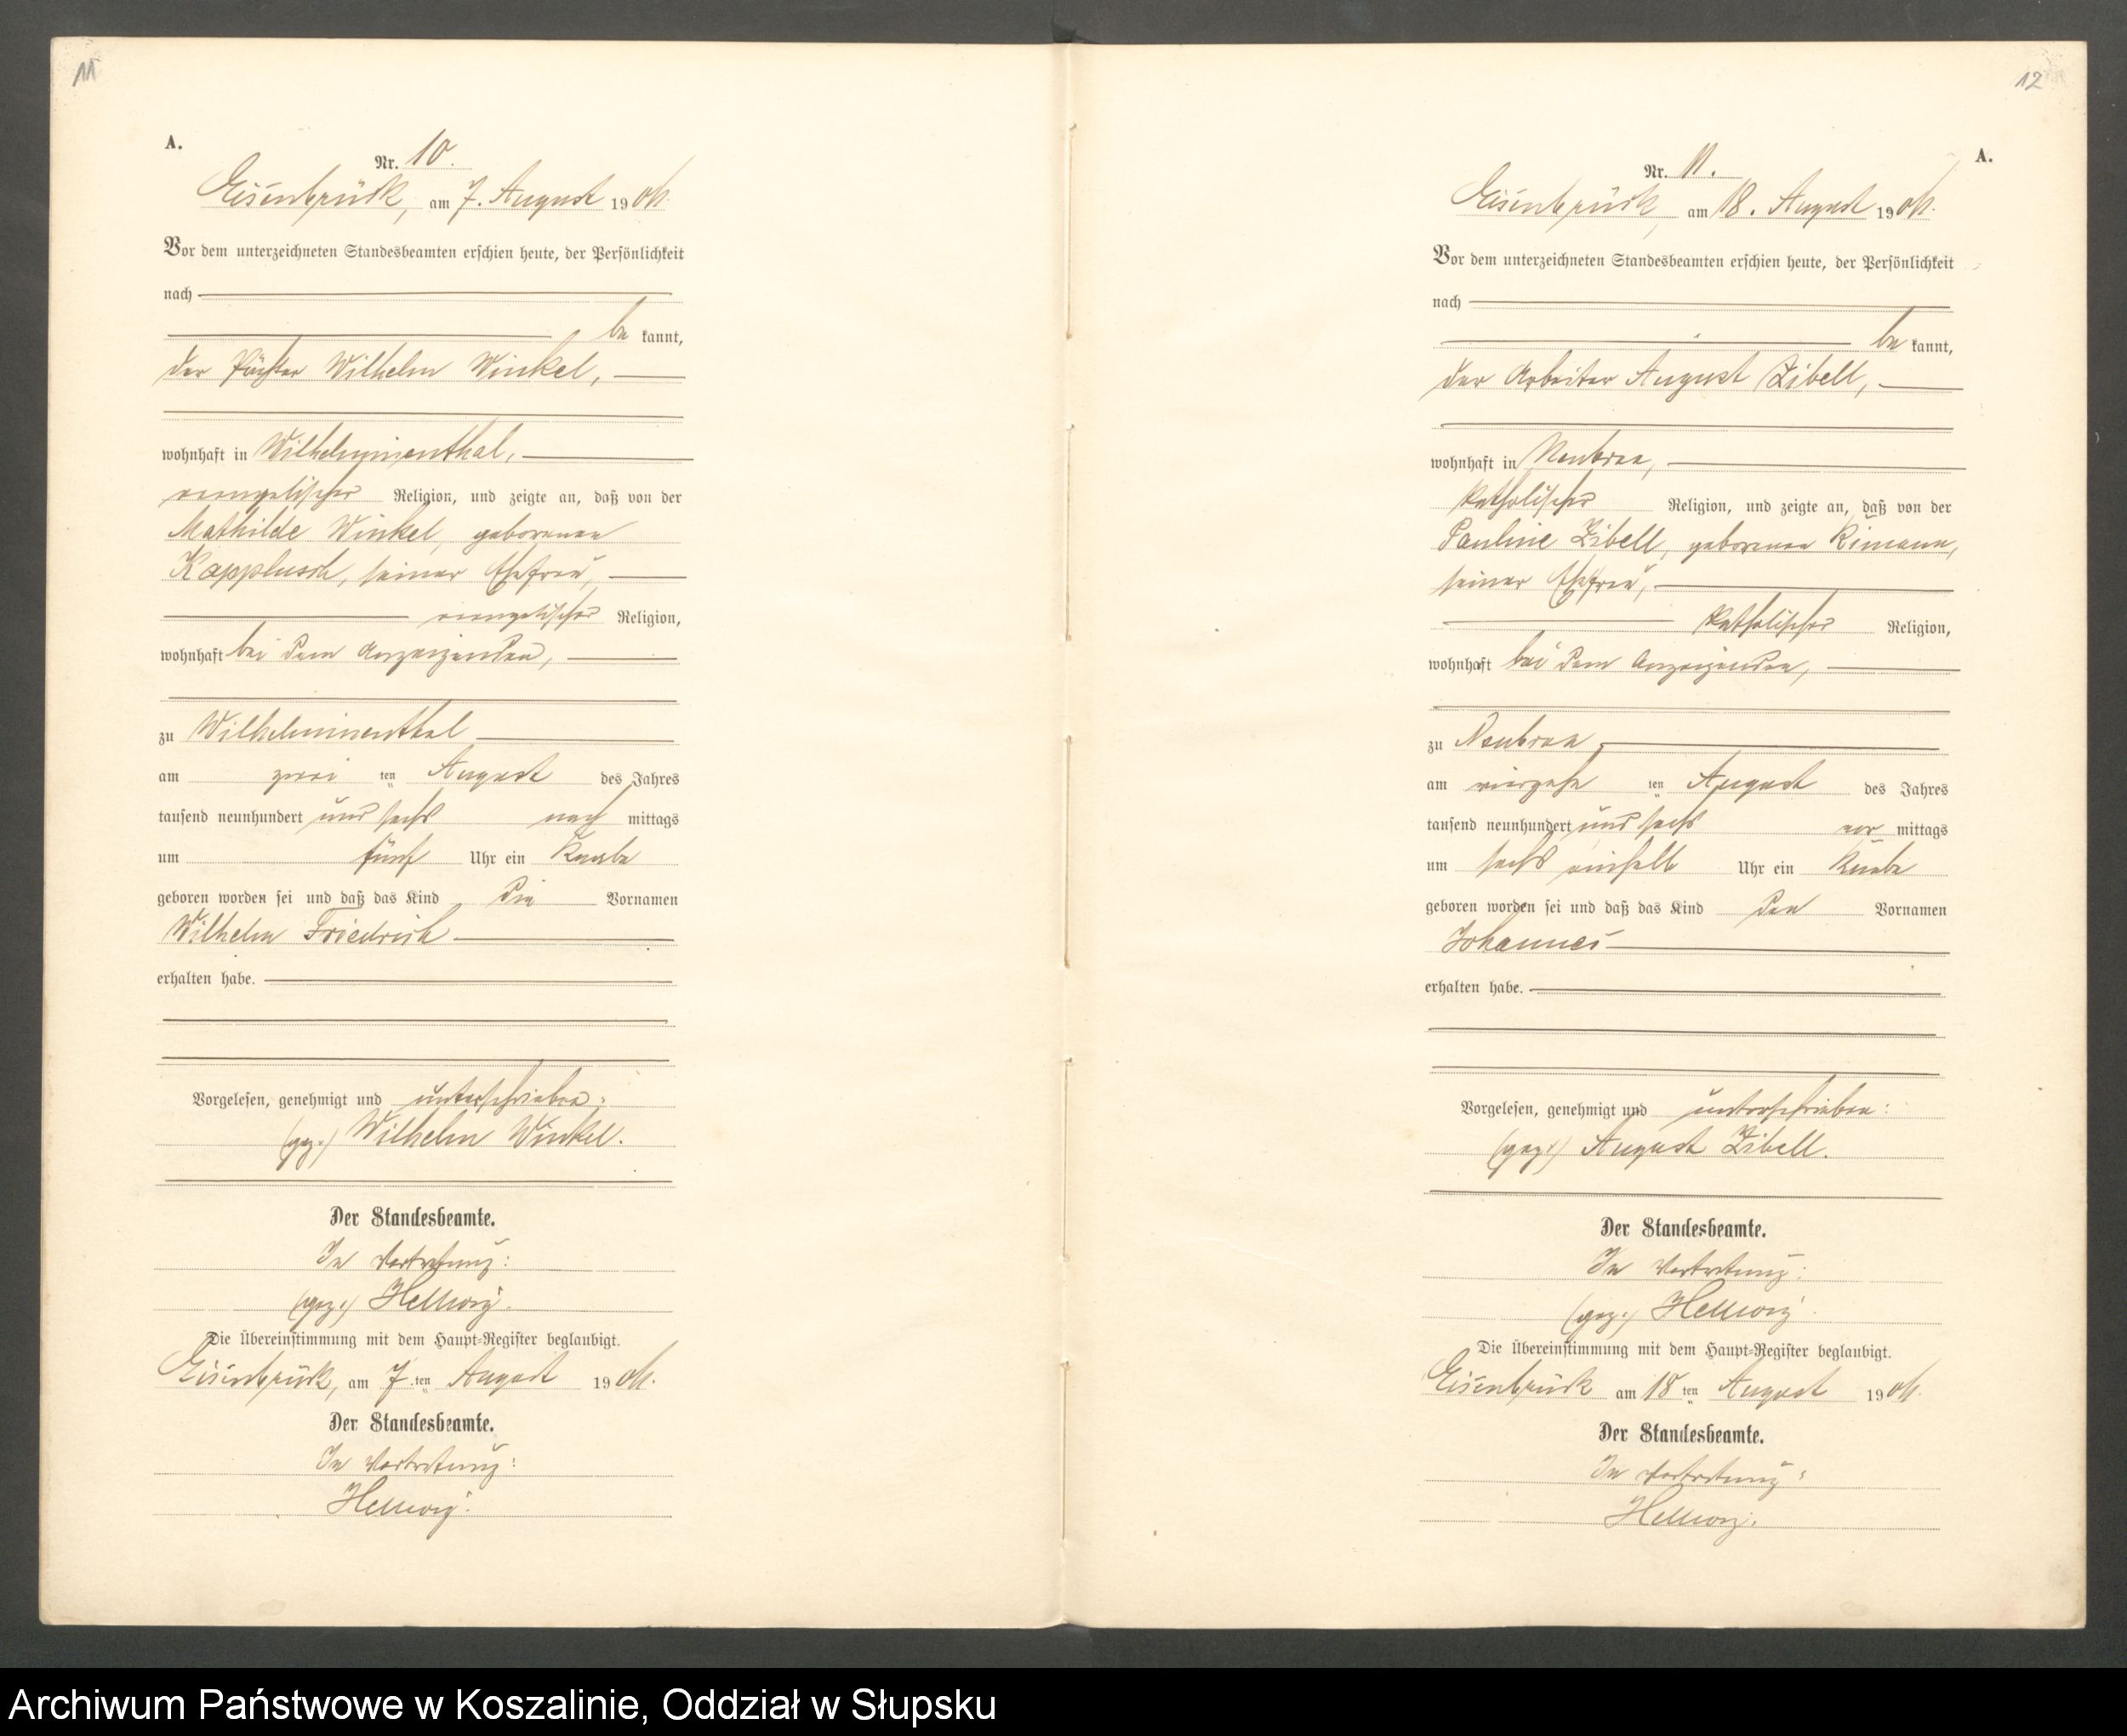 11
A.
Nr. 10.
Eisenbrück, am 7. August 1906.
Vor dem unterzeichneten Standesbeamten erschien heute, der Persönlichkeit
nach
be kannt,
der Wilhelm Winkel,
wohnhaft in Wilhelminenthal,
evangelischer Religion, und zeigte an, daß von der
Mathilde Winkel, geborenen
Kapplusch, seiner Ehefrau,
evangelischer Religion,
wohnhaft bei dem Anzeigenden,
zu Wilhelminenthal
am zwei ten August des Jahres
tausend neunhundert und sechs nach mittags
um fünf Uhr ein Knabe
geboren worden sei und daß das Kind die Vornamen
Wilhelm Friedrich
erhalten habe.
Vorgelesen, genehmigt und unterschrieben:
(gez.) Wilhelm Winkel.
Der Standesbeamte.
In Vertretung:
(gez.) Hellwig.
Die Übereinstimmung mit dem Haupt-Register beglaubigt.
Eisenbrück, am 7.ten August 1906.
Der Standesbeamte.
In Vertretung:
Hellwig.
12
A.
Nr. 11.
Eisenbrück, am 18. August 1906.
Vor dem unterzeichneten Standesbeamten erschien heute, der Persönlichkeit
nach
be kannt,
der Arbeiter August Zibell,
wohnhaft in Neubraa,
katholischer Religion, und zeigte an, daß von der
Pauline Zibell, geborenen Rimann,
seiner Ehefrau,
katholischer Religion,
wohnhaft bei dem Anzeigenden,
zu Neubraa
am vierzehn ten August des Jahres
tausend neunhundert und sechs vor mittags
um sechs einhalb Uhr ein Knabe
geboren worden sei und daß das Kind den Vornamen
Johannes
erhalten habe.
Vorgelesen, genehmigt und unterschrieben:
(gez.) August Zibell.
Der Standesbeamte.
In Vertretung:
(gez.) Hellwig.
Die Übereinstimmung mit dem Haupt-Register beglaubigt.
Eisenbrück am 18 ten August 1906.
Der Standesbeamte.
In Vertretung:
Hellwig.
Archiwum Państwowe w Koszalinie, Oddział w Słupsku